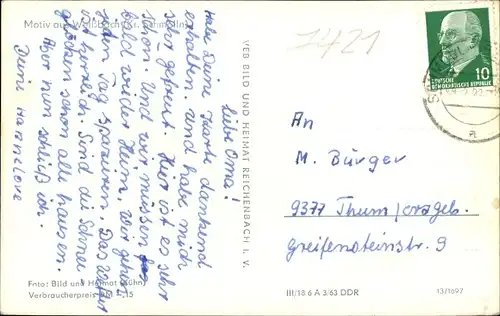 Motiv aus
liebe Oma!
Habe Deine Karte dankend
erhalten und habe mich
sehr gefreut. Hier ist es sehr
schön. Und wir müssen
bald wieder Heim. Wir gehen
jeden Tag spazieren. Das Wetter
ist herrlich. Sind die Schnee
glöckchen schon alle
Aber nun schließ ich.
Deine Hannelore
Foto: Bild und Heimat (Kühn)
Verbraucherpreis DM -,15
VEB BILD UND HEIMAT REICHENBACH I. V.
7421
10
DEUTSCHE
DEMOKRATISCHE REPUBLIK
An
M. Bürger
9377 Thum/erzgeb.
Greifensteinstr. 9
III/18 6 A 3/63 DDR
13/1697